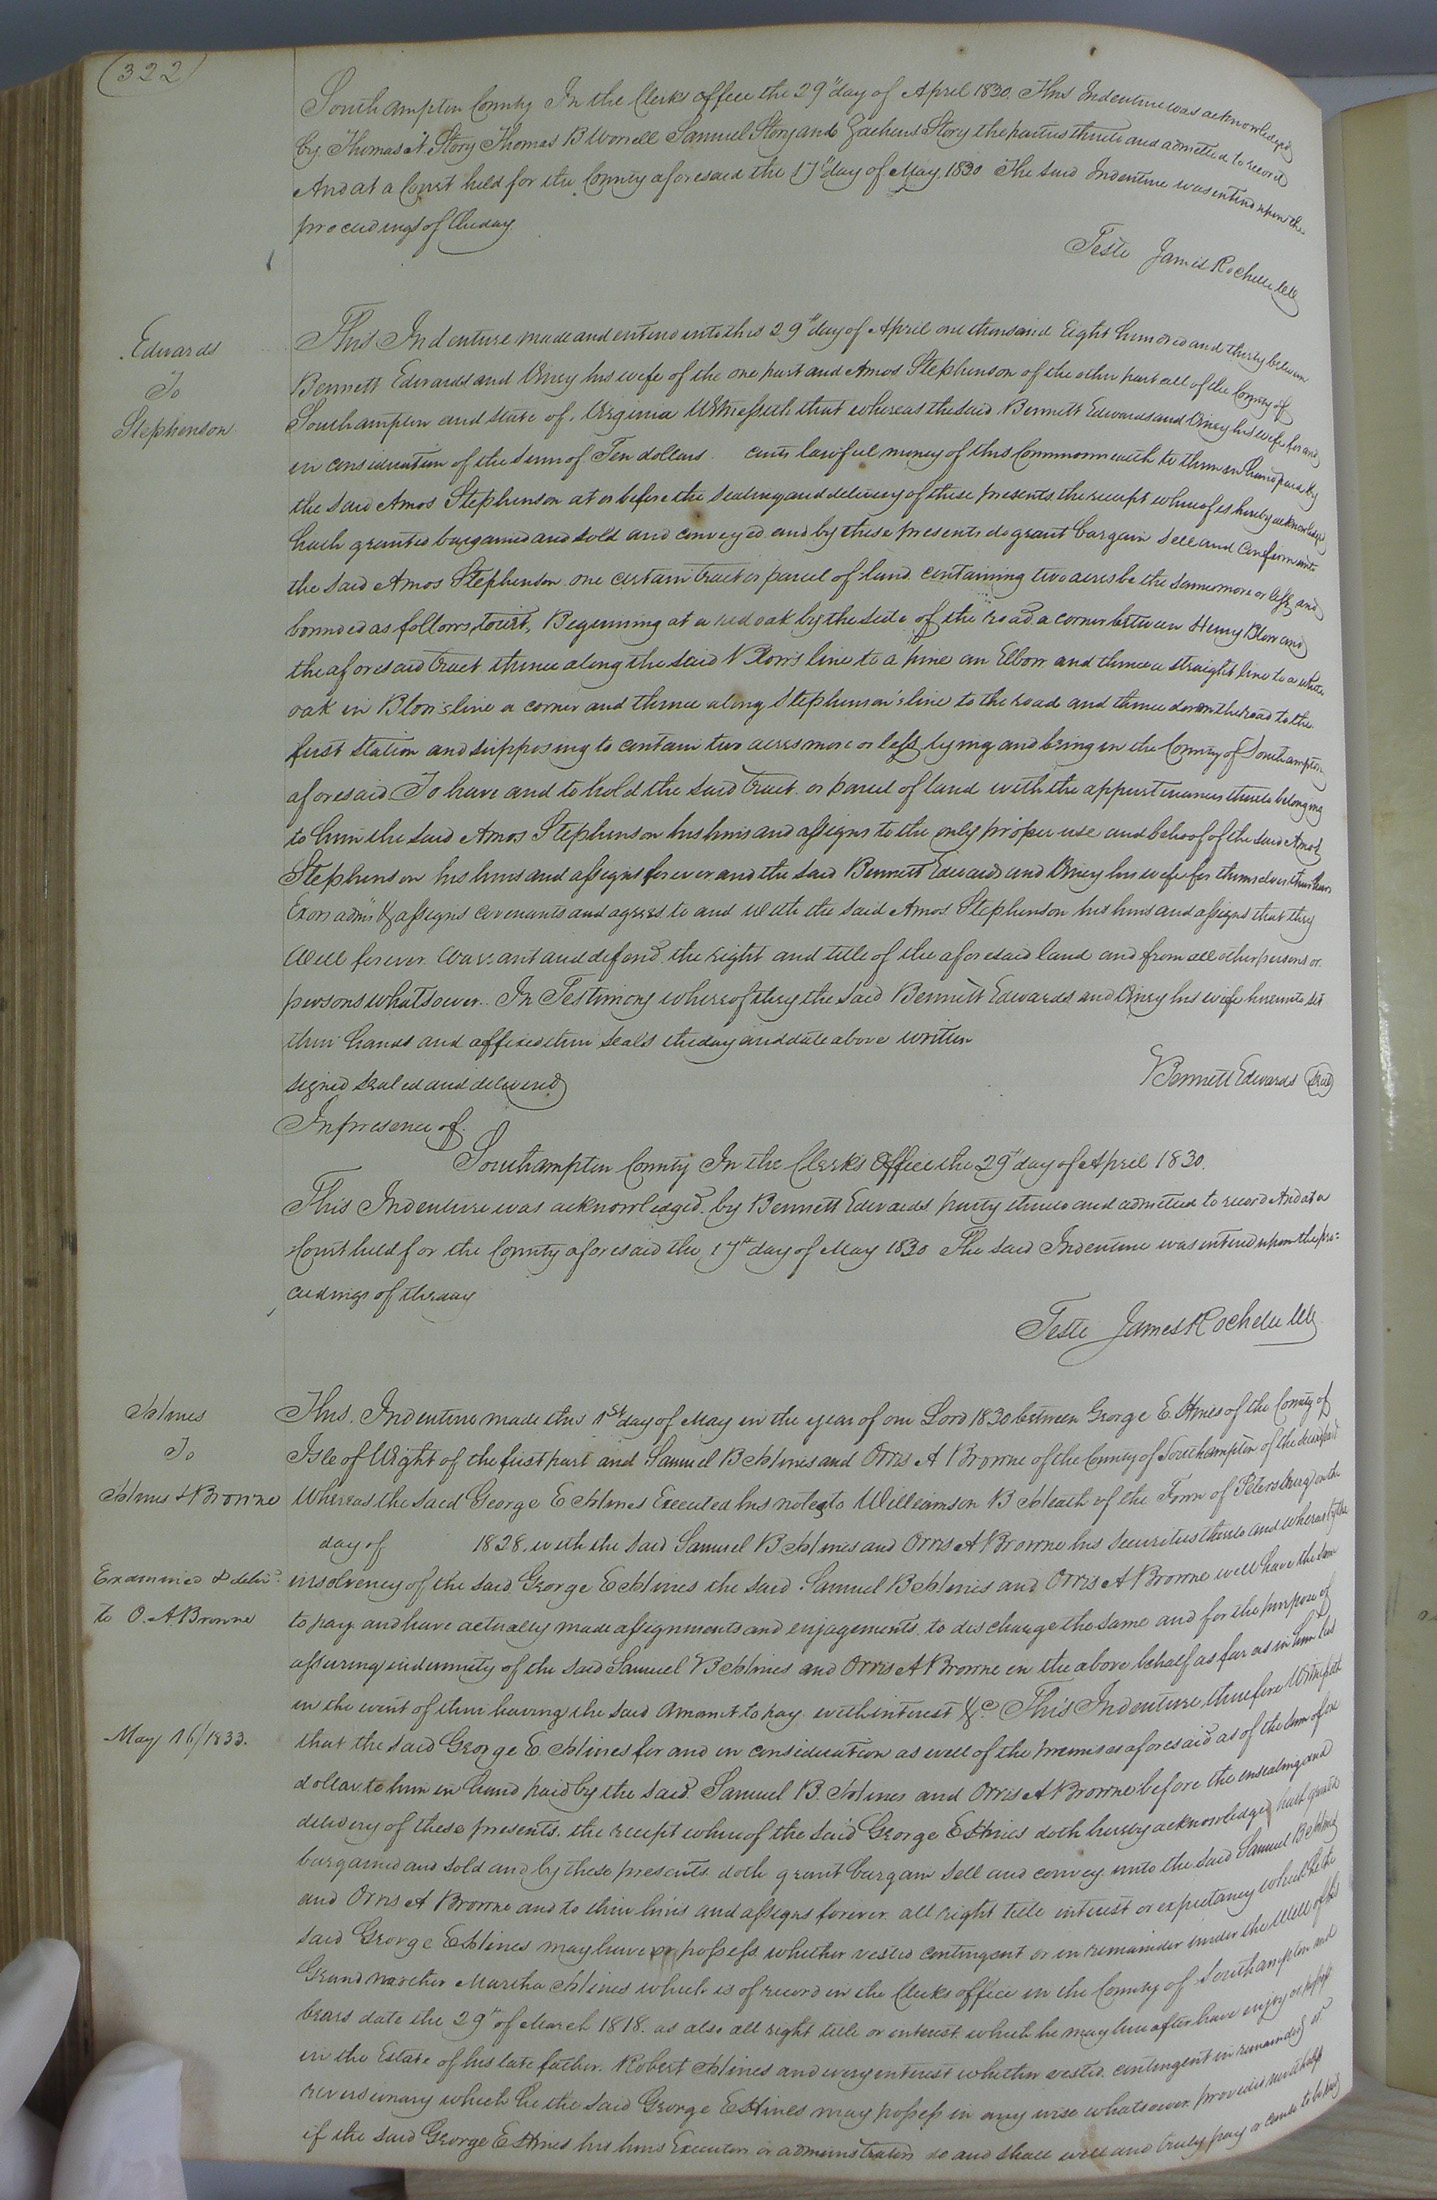 (322)
Southampton County In the Clerks office the 29th day of April 1830. This Indenture was acknowledged
by Thomas N. Story Thomas B Worrell Samuel Story and Zacheus Story the parties thereto and admitted to record
And at a Court held for the County aforesaid the 17th day of May 1830 The said Indenture was entered upon the
proceedings of the day
Teste James Rochelle Clk
Edwards
To
Stephenson
This Indenture made and entered into this 29th day of April one thousand Eight hundred and thirty between
Bennett Edwards and Viney his wife of the one part and Amos Stephenson of the other part all of the County of
Southampton and State of Virginia Witnesseth that whereas the said Bennett Edwards and Viney his wife for and
in consideration of the sum of Ten dollars cents lawful money of this Commonwealth to them in hand paid by
the said Amos Stephenson at or before the sealing and delivery of these presents the receipt whereof is hereby acknowledged
hath granted bargained and sold and conveyed and by these presents do grant bargain sell and confirm unto
the said Amos Stephenson one certain tract or parcel of land containing two acres be the same more or less and
bounded as follows, towit, Beginning at a red oak by the side of the road a corner between Henry Blow and
the aforesaid tract thence along the said Blow's line to a pine an Elbow and thence a straight line to a white
oak in Blow's line a corner and thence along Stephenson's line to the road and thence down the road to the
first station and supposing to contain two acres more or less lying and being in the County of Southampton
aforesaid To have and to hold the said tract or parcel of land with the appurtenances thereto belonging
to him the said Amos Stephenson his heirs and assigns to the only proper use and behoof of the said Amos
Stephenson his heirs and assigns forever and the said Bennett Edwards and Viney his wife for themselves their heirs
Exors admrs & assigns covenants and agrees to and with the said Amos Stephenson his heirs and assigns that they
Will forever warrant and defend the right and title of the aforesaid land and from all other persons or
persons whatsoever. In Testimony whereof they the said Bennett Edwards and Viney his wife hereunto set
their hands and affixed their seals the day and date above written
signed sealed and delivered
Bennett Edwards (Seal)
In presence of.
Southampton County In the Clerk's office the 29th day of April 1830.
This Indenture was acknowledged by Bennett Edwards party thereto and admitted to record And at a
Court held for the County aforesaid the 17th day of May 1830 The said Indenture was entered upon the pro=
ceedings of the day
Teste James Rochelle Clk
Hines
To
Hines & Browne
Examined & delivd
to O. A. Browne
May 16/1833.
This Indenture made this 1st day of May in the year of our Lord 1830 between George E. Hines of the County of
Isle of Wight of the first part and Samuel B Hines and Orris A Browne of the County of Southampton of the second part
Whereas the said George E Hines Executed his notes to Williamson B Heath of the Town of Petersburg on the
day of 1828. with the said Samuel B Hines and Orris A Browne his securities thereto and whereas by the
insolvency of the said George E Hines the said Samuel B Hines and Orris A Browne will have the same
to pay and have actually made assignments and engagements to discharge the same and for the purpose of
assuring indemnity of the said Samuel B Hines and Orris A Browne in the above behalf as far as in him lies
in the event of their having the said amount to pay with interest &c. This Indenture therefore Witnesseth
that the said George E. Hines for and in consideration as well of the premises aforesaid as of the sum of one
dollar to him in hand paid by the said Samuel B. Hines and Orris A Browne before the ensealing and
delivery of these presents. the receipt whereof the said George E Hines doth hereby acknowledge, hath granted
bargained and sold and by these presents doth grant bargain sell and convey unto the said Samuel B Hines
and Orris A Browne and to their heirs and assigns forever all right title interest or expectancy which he the
said George E Hines may have or possess whether vested contingent or in remainder under the Will of his
Grand mother Martha Hines which is of record in the Clerks office in the County of Southampton and
bears date the 29th of March 1818. as also all right title or interest which he may hereafter have enjoy or possess
in the Estate of his late father Robert Hines and every interest whether vested contingent in remainder or
reversionary which he the said George E Hines may possess in any wise whatsoever. provided nevertheless
if the said George E Hines his heirs Executors or administrators do and shall well and truly pay or cause to be paid